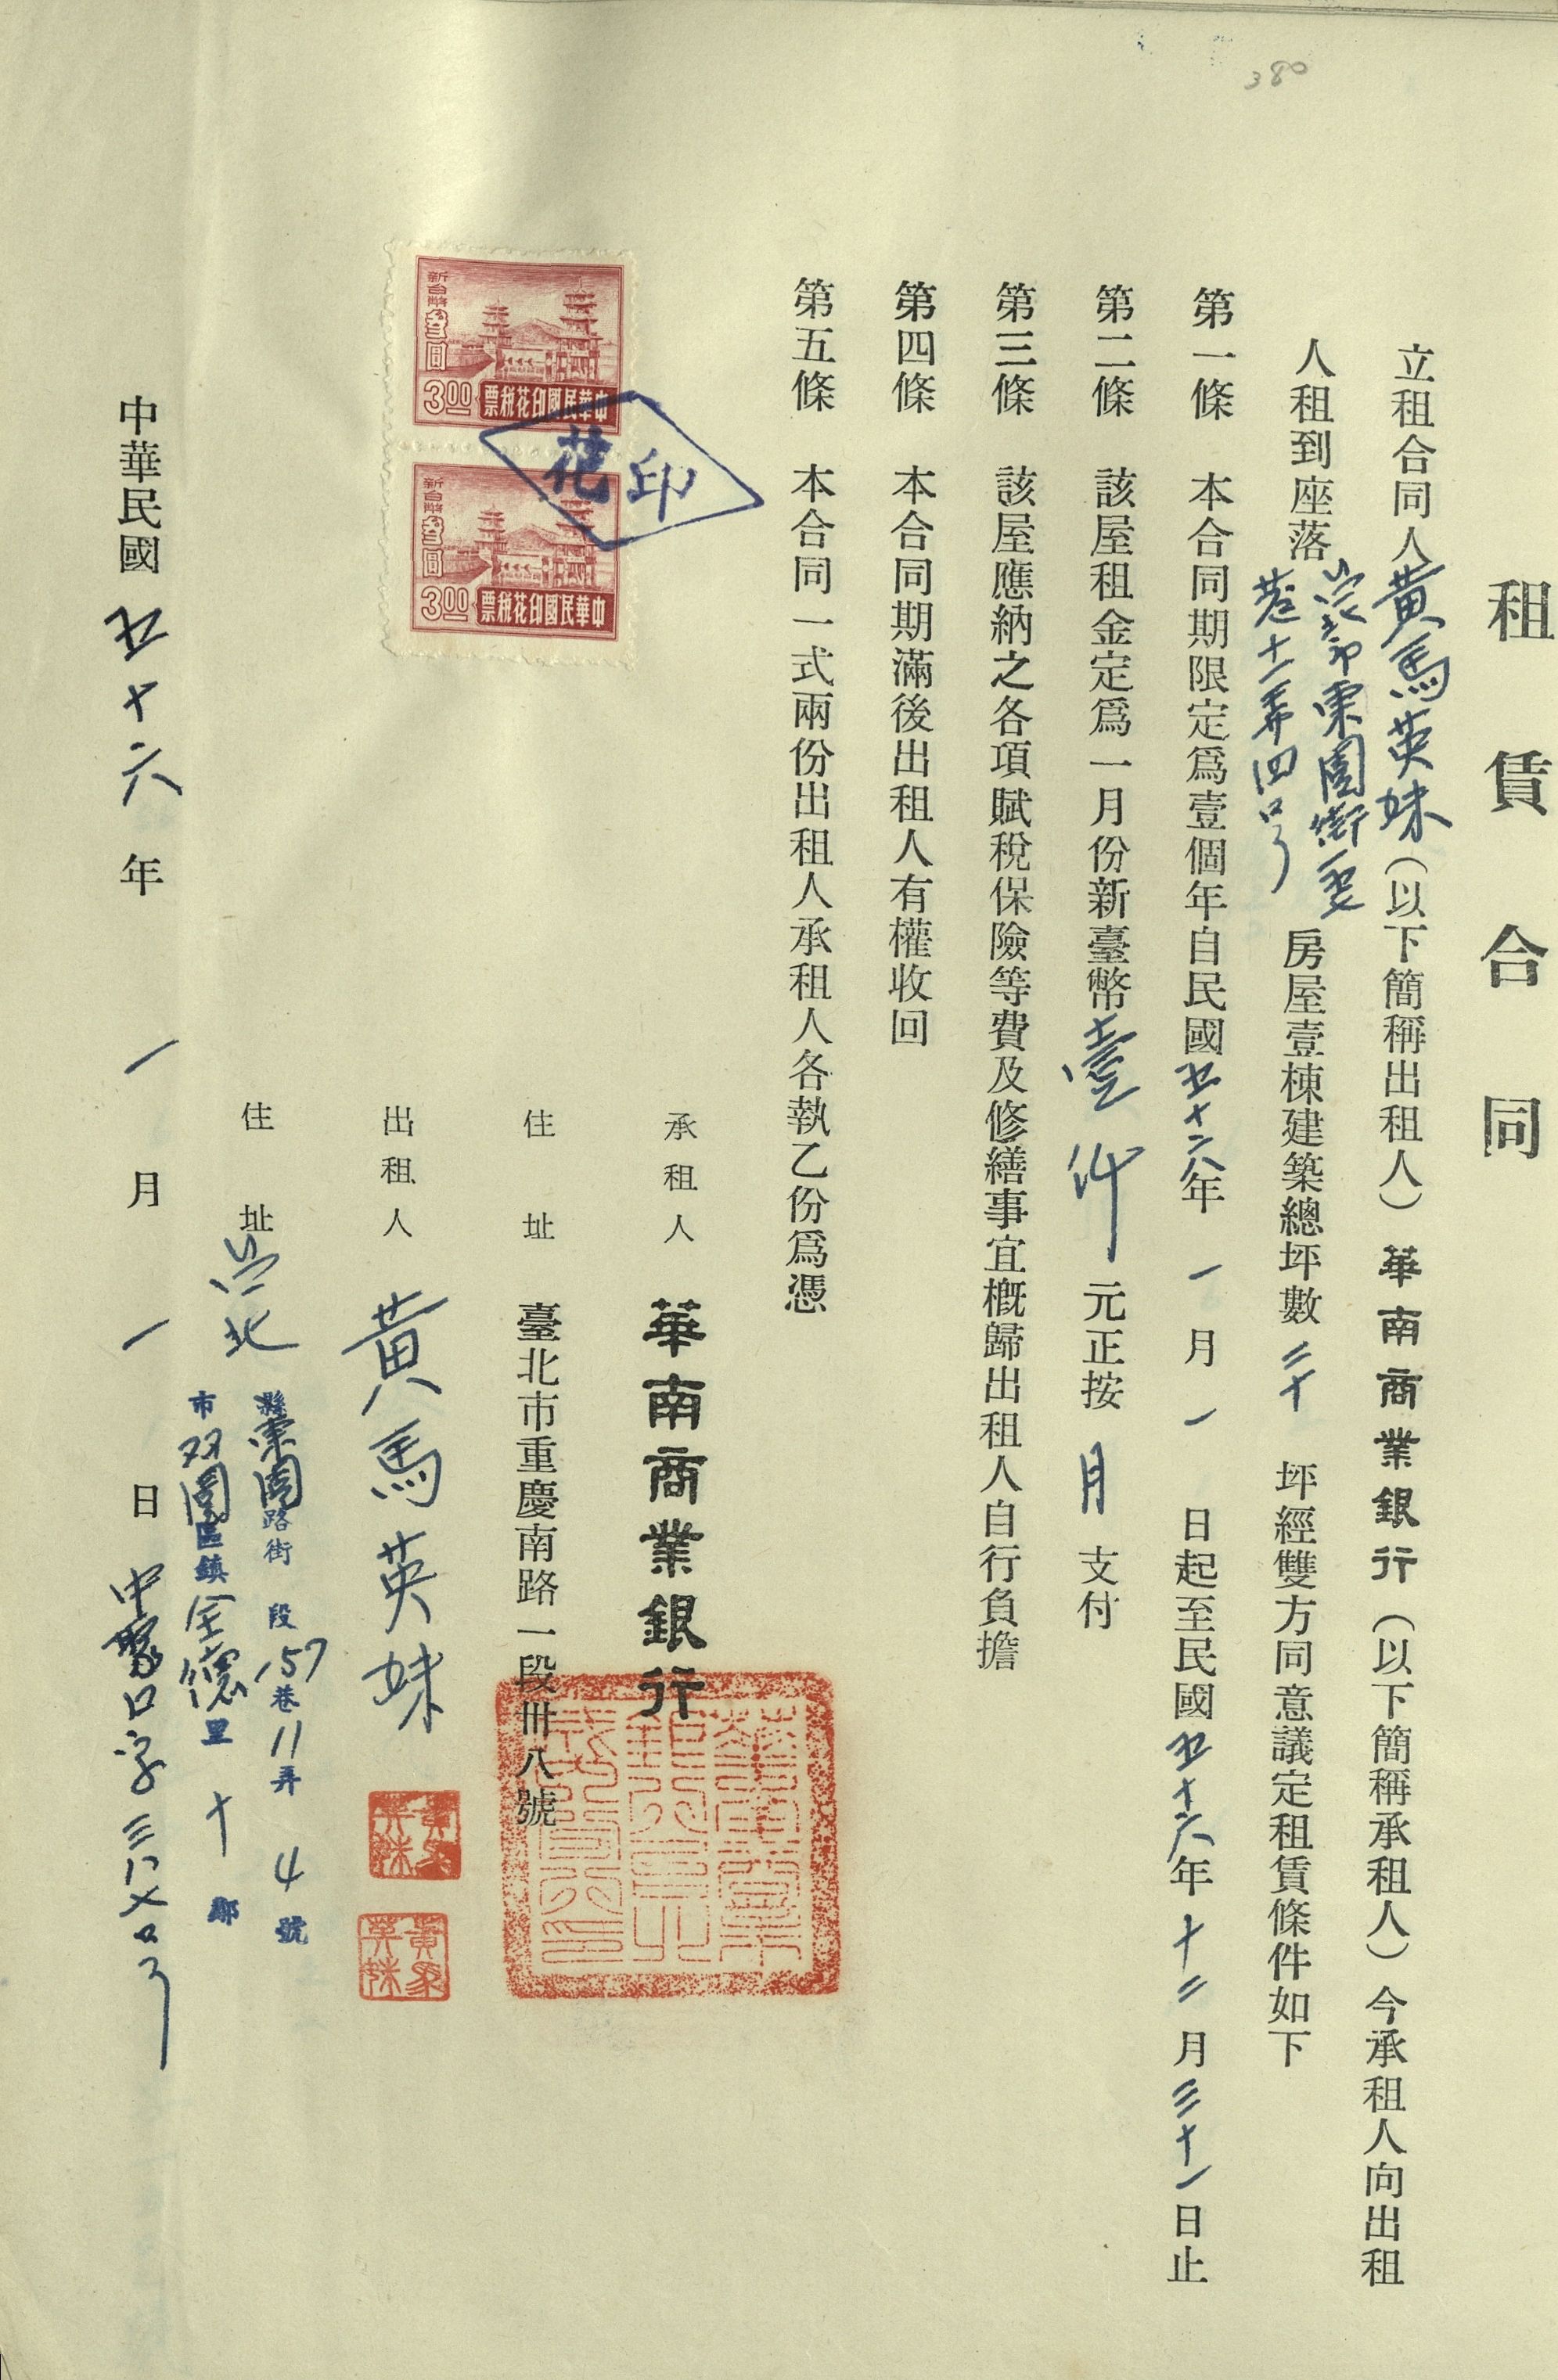 380
租賃合同
立租合同人黃馬英妹（以下簡稱出租人）華南商業銀行（以下簡稱承租人）今承租人向出租
人租到座落台北市東園街一五七
巷十一弄四号
房屋壹棟建築總坪數二十坪經雙方同意議定租賃條件如下
第一條 本合同期限定爲壹個年自民國五十六年一月一日起至民國五十六年十二月三十一日止
第二條 該屋租金定爲一月份新臺幣壹仟元正按月支付
第三條 該屋應納之各項賦稅保險等費及修繕事宜概歸出租人自行負擔
第四條 本合同期滿後出租人有權收回
第五條 本合同一式兩份出租人承租人各執乙份爲憑
承租人 華南商業銀行
住址 臺北市重慶南路一段卌八號
出租人 黃馬英妹
住址 台北
縣東園路街 段157巷11弄4號
市双園區鎮全德里十鄰
中華民國五十六年一月一日
新台幣叁圓
300
中華民國印花稅票
新台幣叁圓
300
中華民國印花稅票
印花
黃馬英妹
黃馬英妹